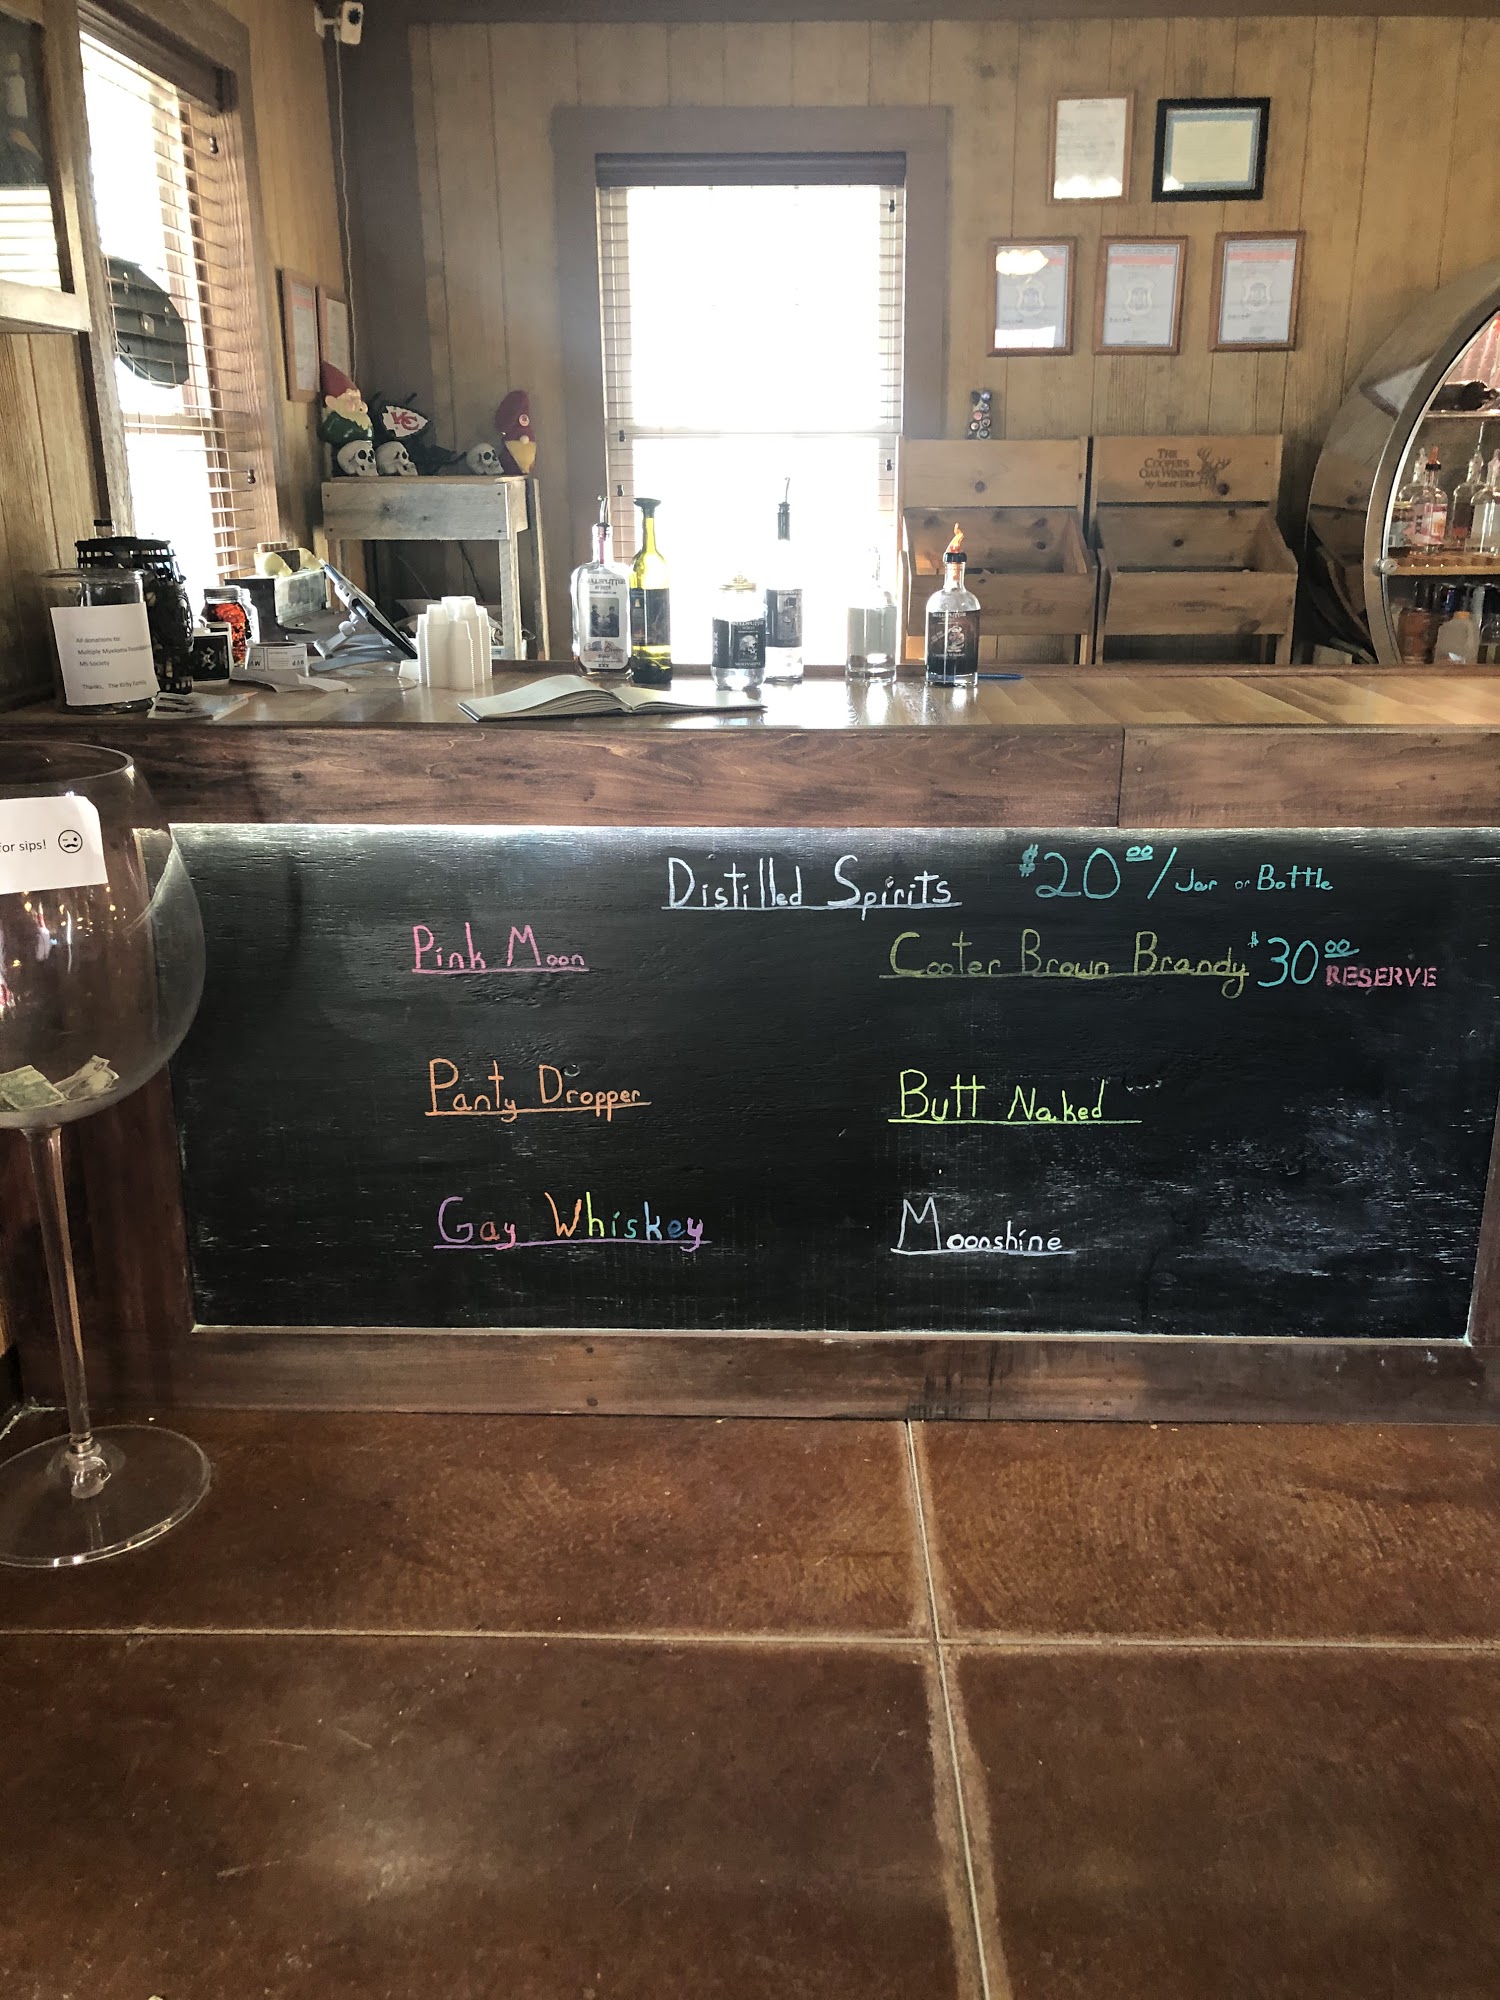 KC
THE
COOPER'S
OAK WINERY
My Sweet Dear
All donations to:
Multiple Myeloma
MS Society
Thanks, The Kirby Family
MVP
MOONSHINE
XXX
for sips!
Distilled Spirits $20.00/Jar or Bottle
Pink Moon
Cooter Brown Brandy $30.00 RESERVE
Panty Dropper
Butt Naked
Gay Whiskey
Moonshine